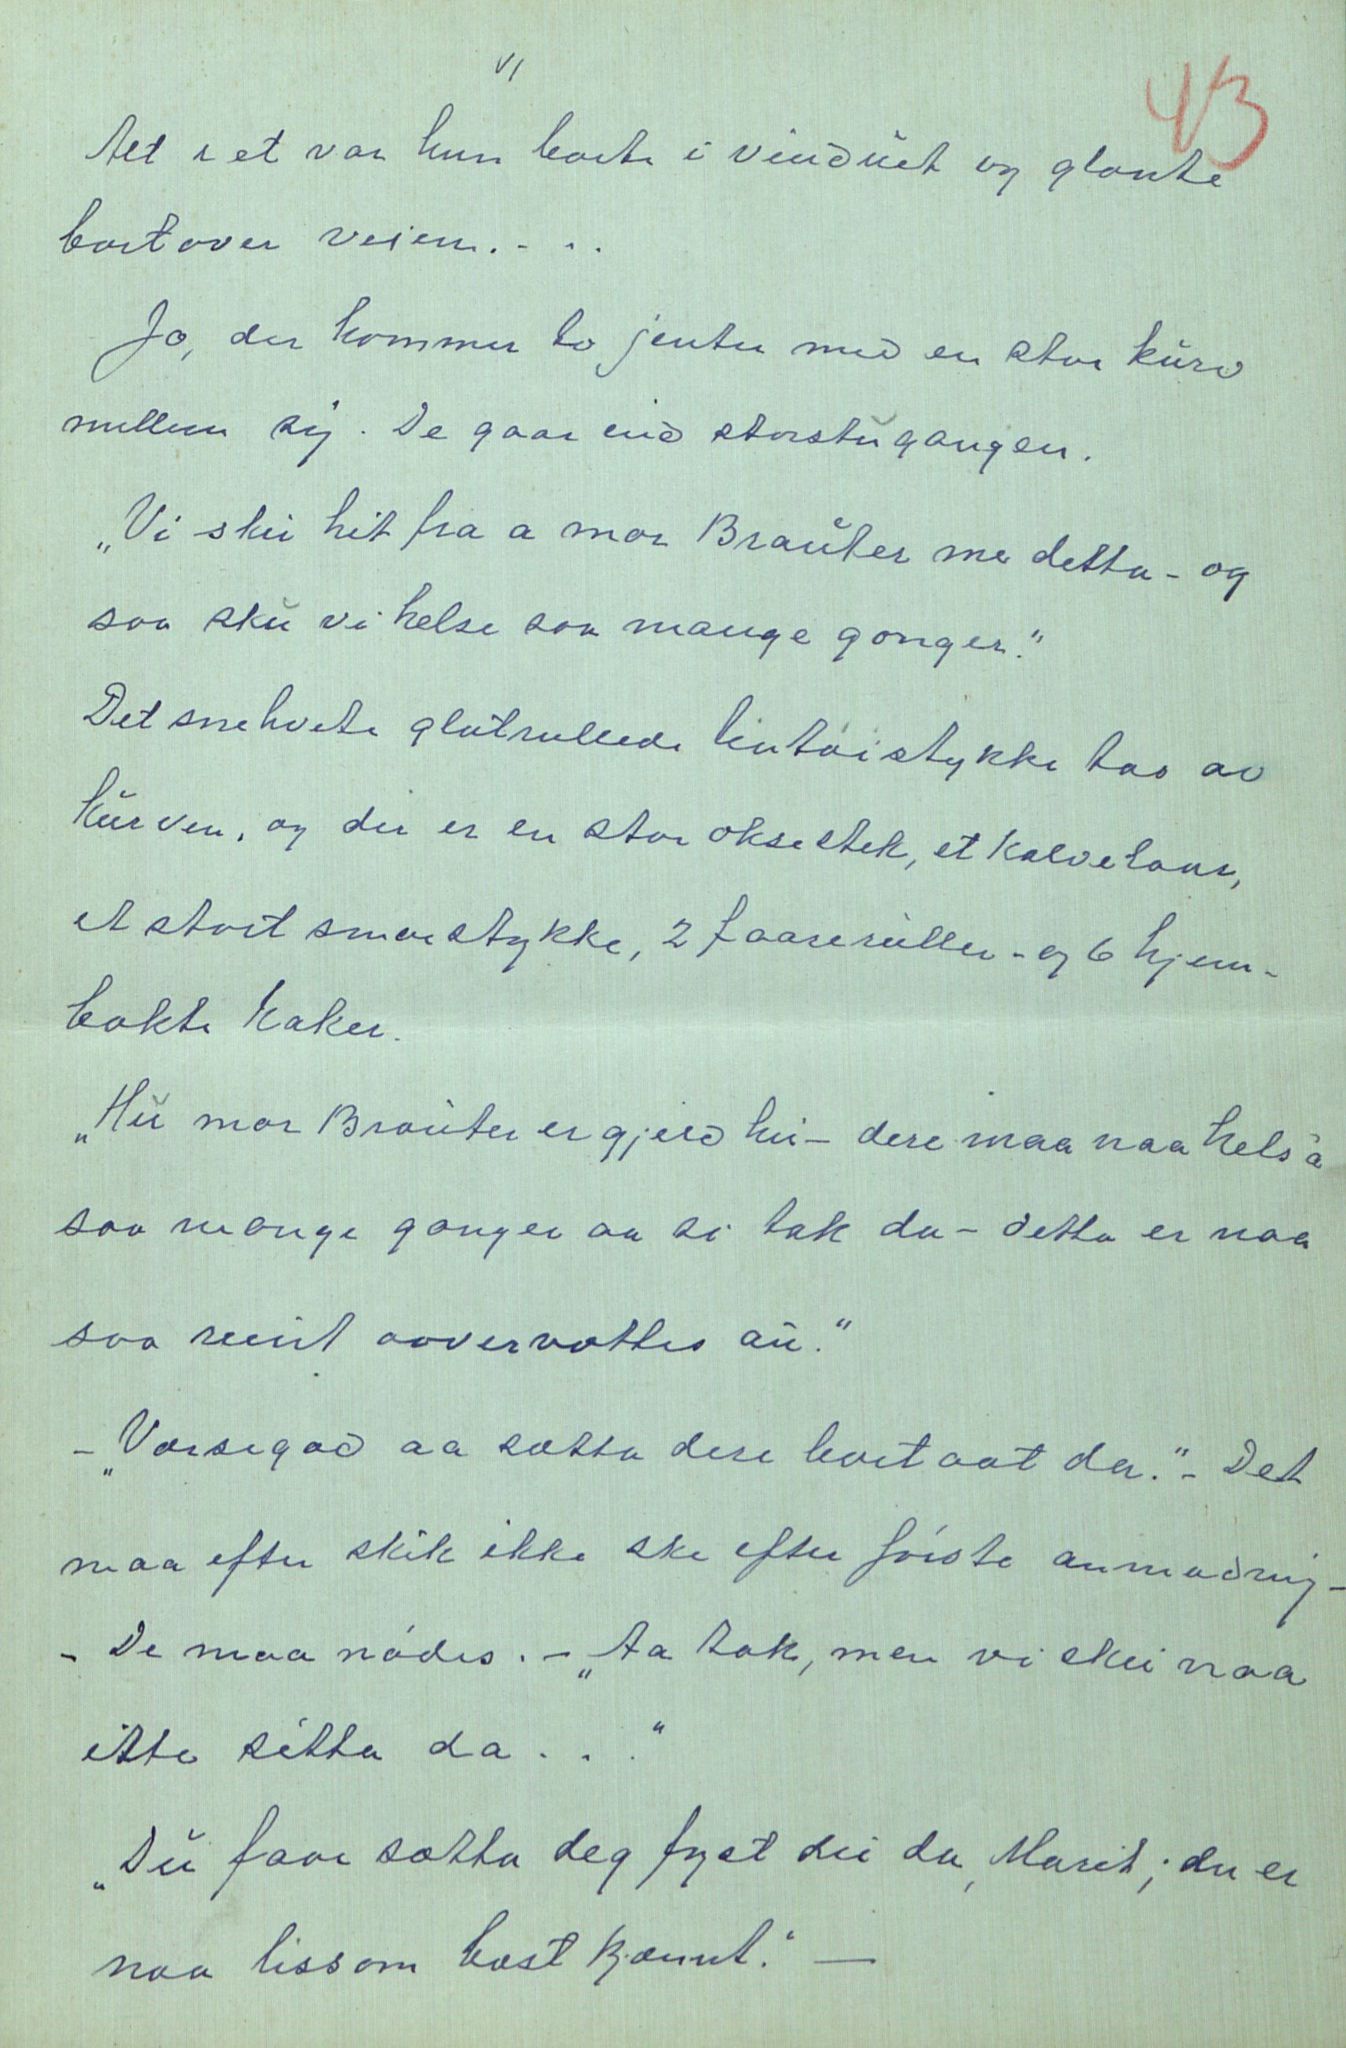 VI
43
Alt i et var hun borte i vinduet og glante
bortover veien. - . .
Jo, der kommer to jenter med en stor kurv
mellem sig. De gaar ind storstugangen.
„Vi sku hit fra a mor Brauter me detta - og
saa sku vi helse saa mange gonger."
Det snehvete glatrullede lintøistykke tas av
kurven, og der er en stor oksestek, et kalvelaar,
et stort smørstykke, 2 faareruller - og 6 hjem-
bakte kaker.
„Hu mor Brauter er gjild hu - dere maa naa hels a
saa mange gonger aa si tak da - detta er naa
saa reint aavervættes au."
- „Værsegod aa sætta dere bort aat der." - Det
maa efter skik ikke ske efter første anmodning -
- De maa nødes. - „Aa tak, men vi sku naa
itte sitta da . . ."
„Du faar sætta deg fyst du da, Marit; du er
naa lissom bæst kjænnt." —